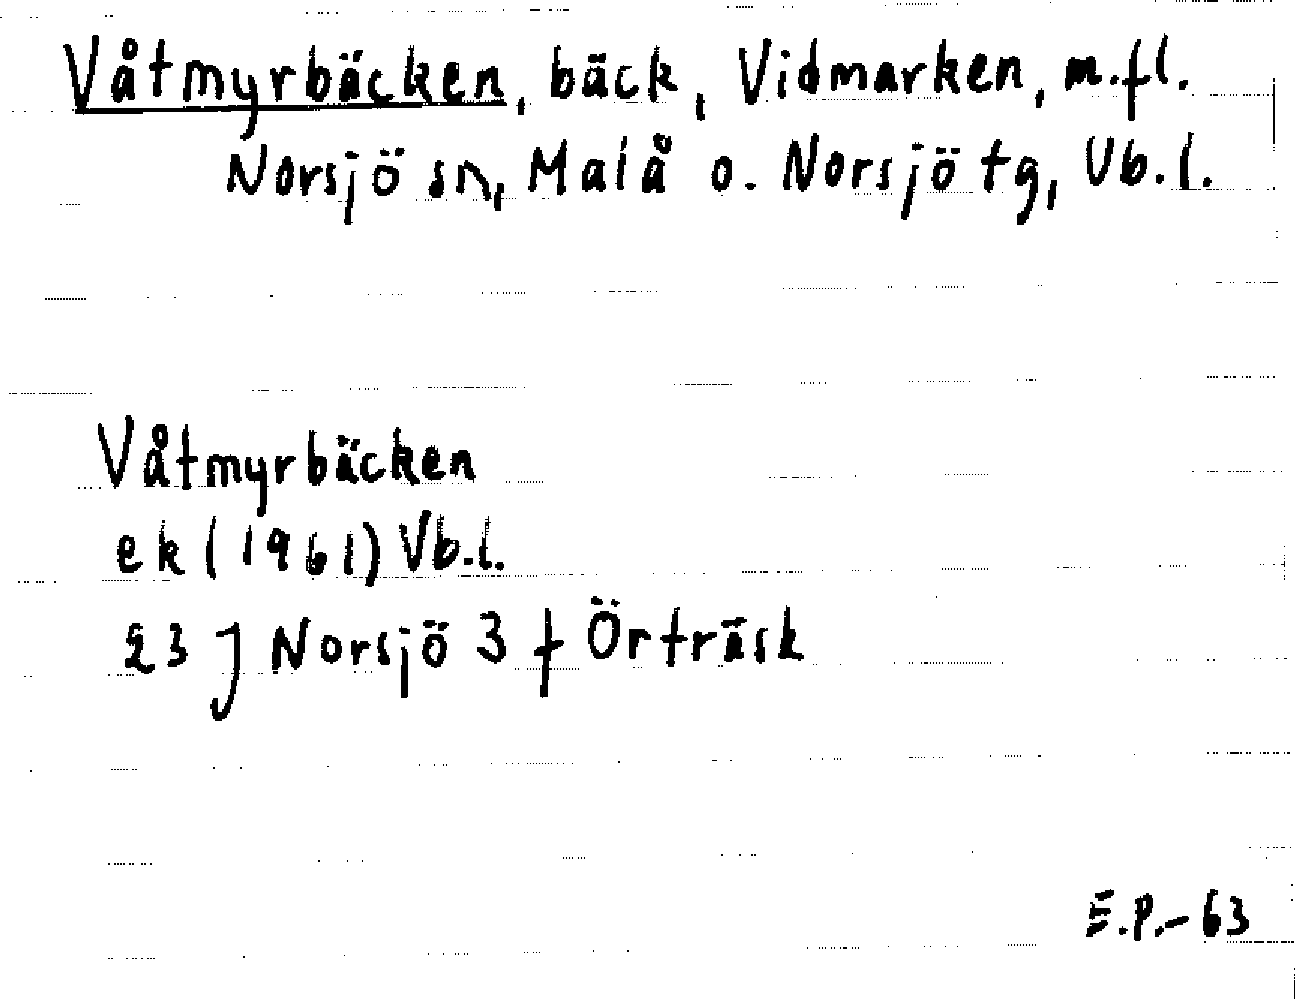 Våtmyrbäcken, bäck, Vidmarken, m.fl.
Norsjö sn, Malå o. Norsjö tg, Vb.l.
Våtmyrbäcken
ek (1961) Vb.l.
23 J Norsjö 3 f Örträsk
E.P.-63